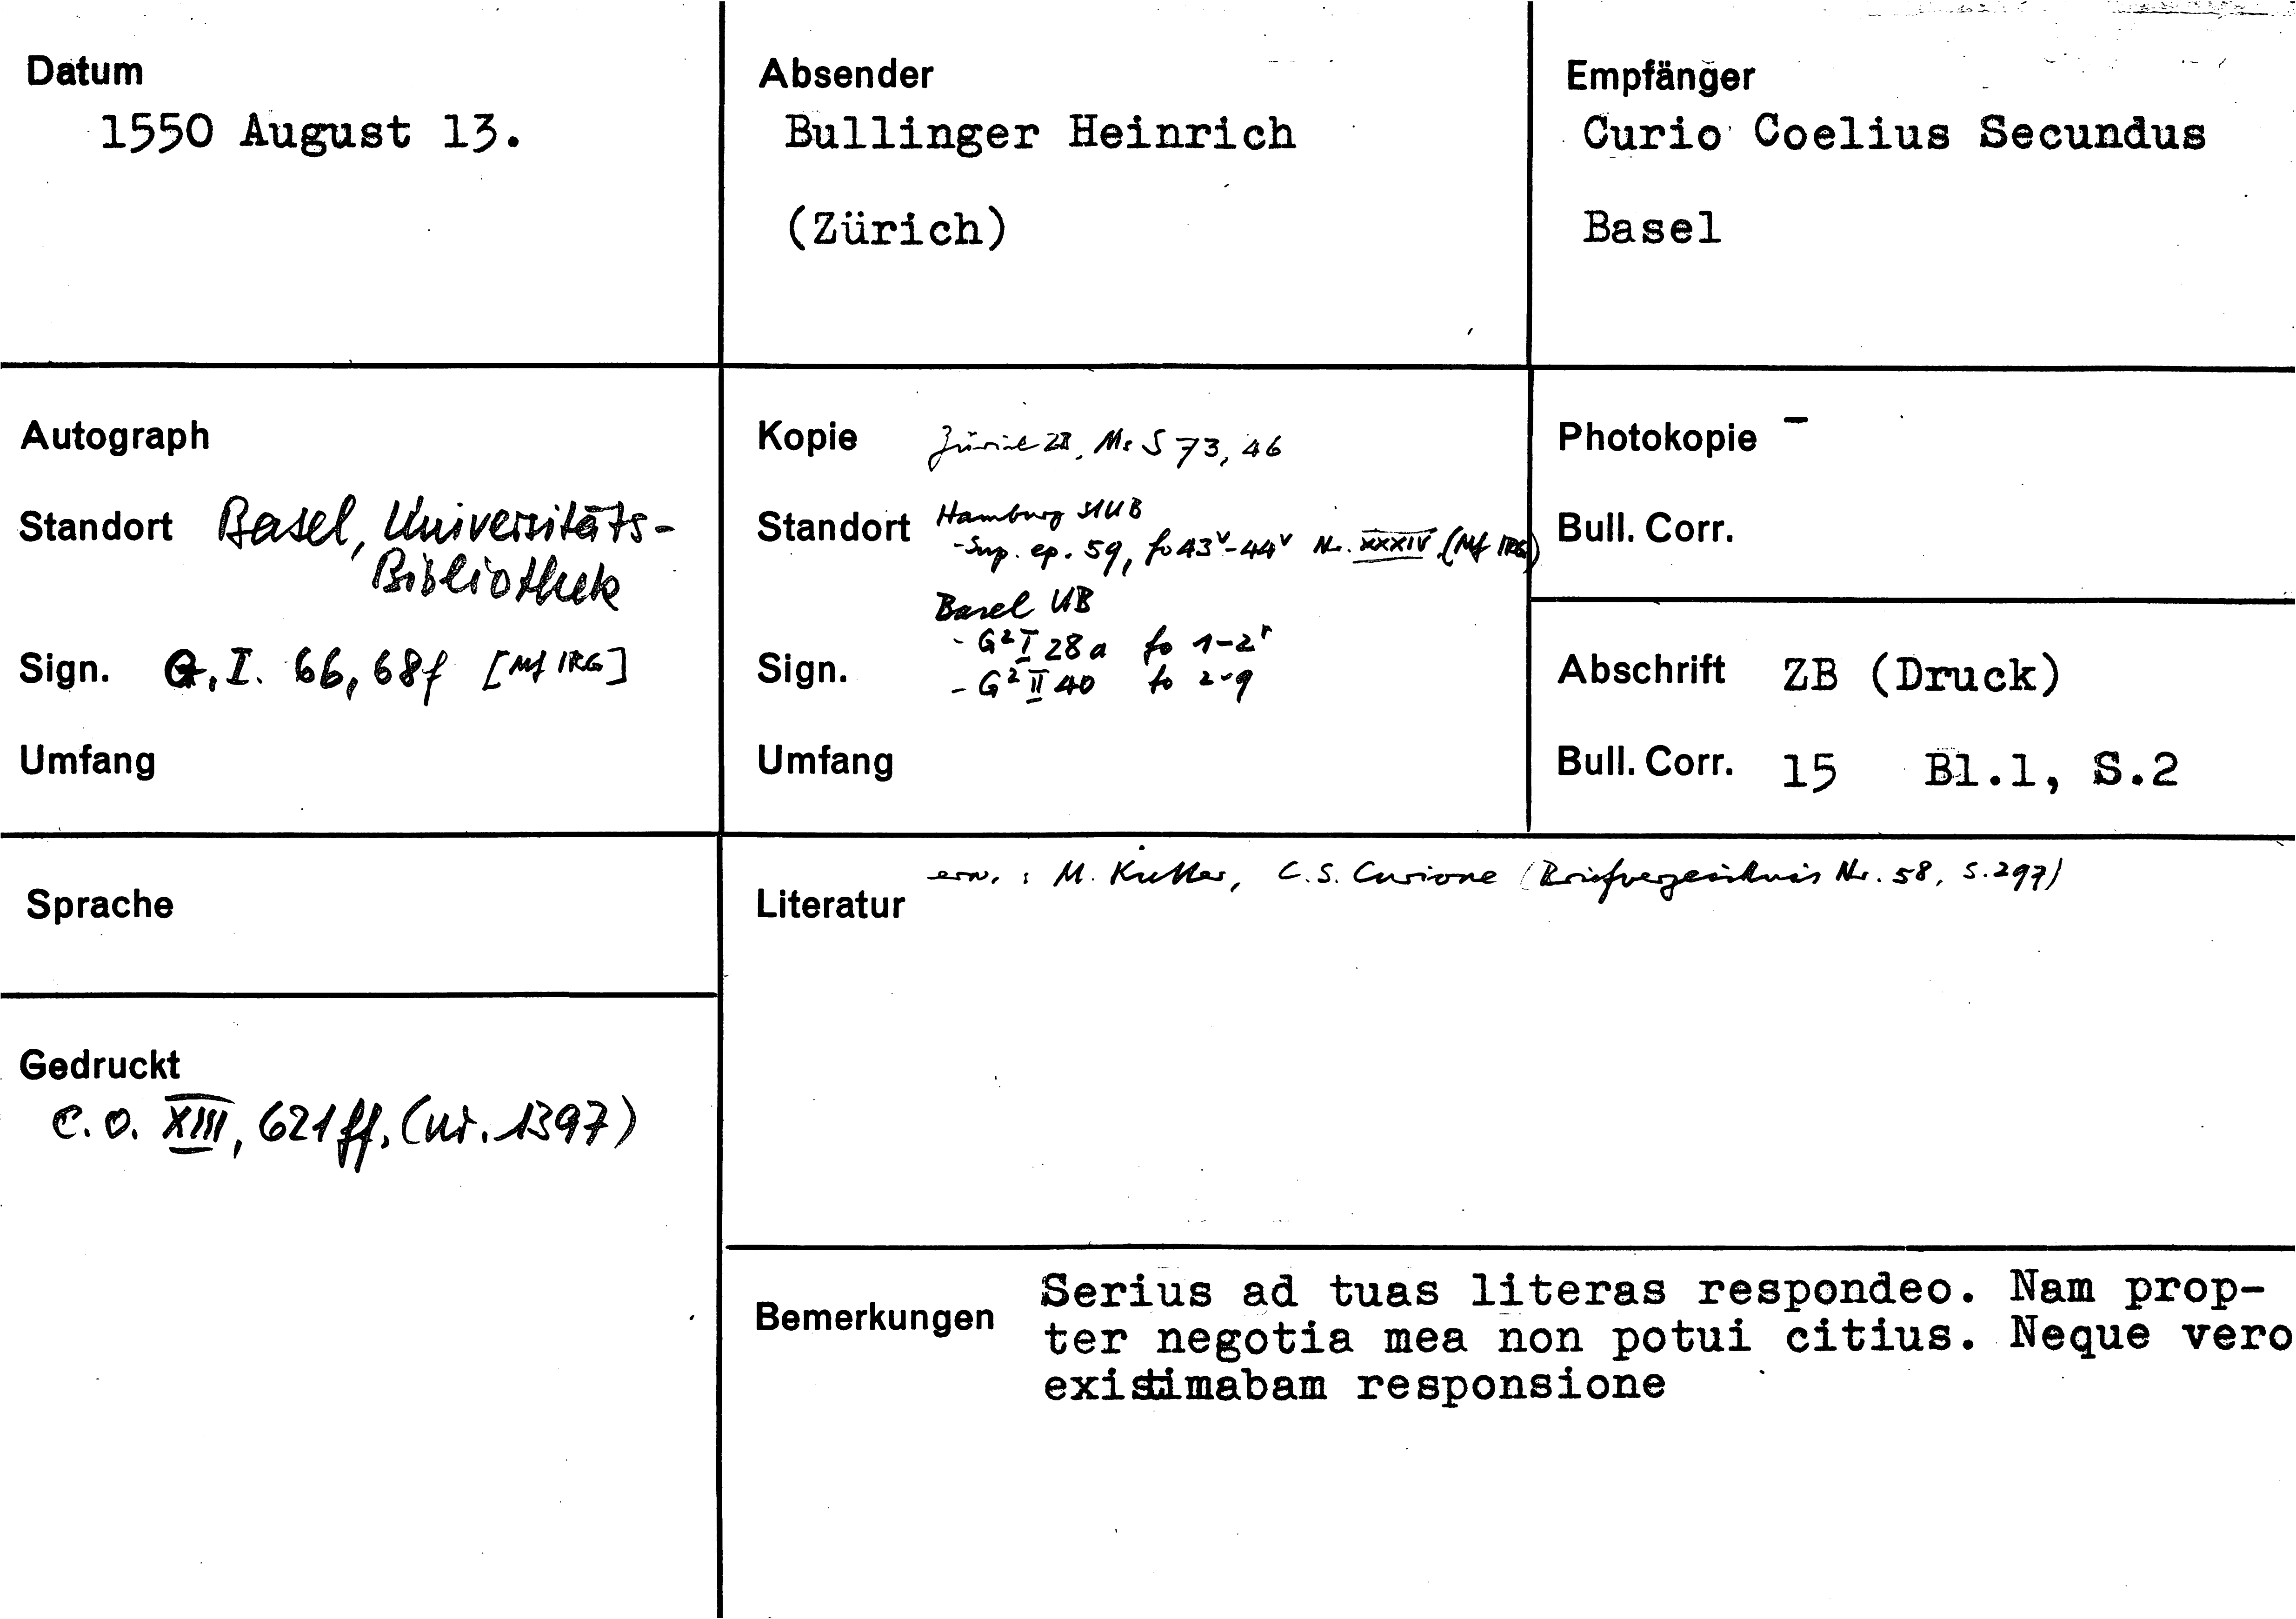 Datum
1550 August 13.
Absender
Bullinger Heinrich
(Zürich)
Empfänger
Curio Coelius Secundus
Basel
Autograph
Standort Basel, Universitäts-
Bibliothek
Sign. G.I. 66, 68f [Mf IRG]
Umfang
Kopie Zürich ZB, Ms S 73, 46
Standort Hamburg SUB
- Sup. ep. 59, fo 43v-44v Nr. XXXIV (Mf IRG)
Basel UB
- G² I 28a fo 1-2r
Sign.
- G² II 40 fo 2-9
Umfang
Photokopie –
Bull. Corr.
Abschrift ZB (Druck)
Bull. Corr. 15 Bl.1, S.2
Sprache
Literatur erw. : M. Kutter, C.S. Curione (Briefverzeichnis Nr. 58, S.297)
Gedruckt
C.O. XIII, 621ff. (Nr. 1397)
Bemerkungen
Serius ad tuas literas respondeo. Nam prop-
ter negotia mea non potui citius. Neque vero
existimabam responsione